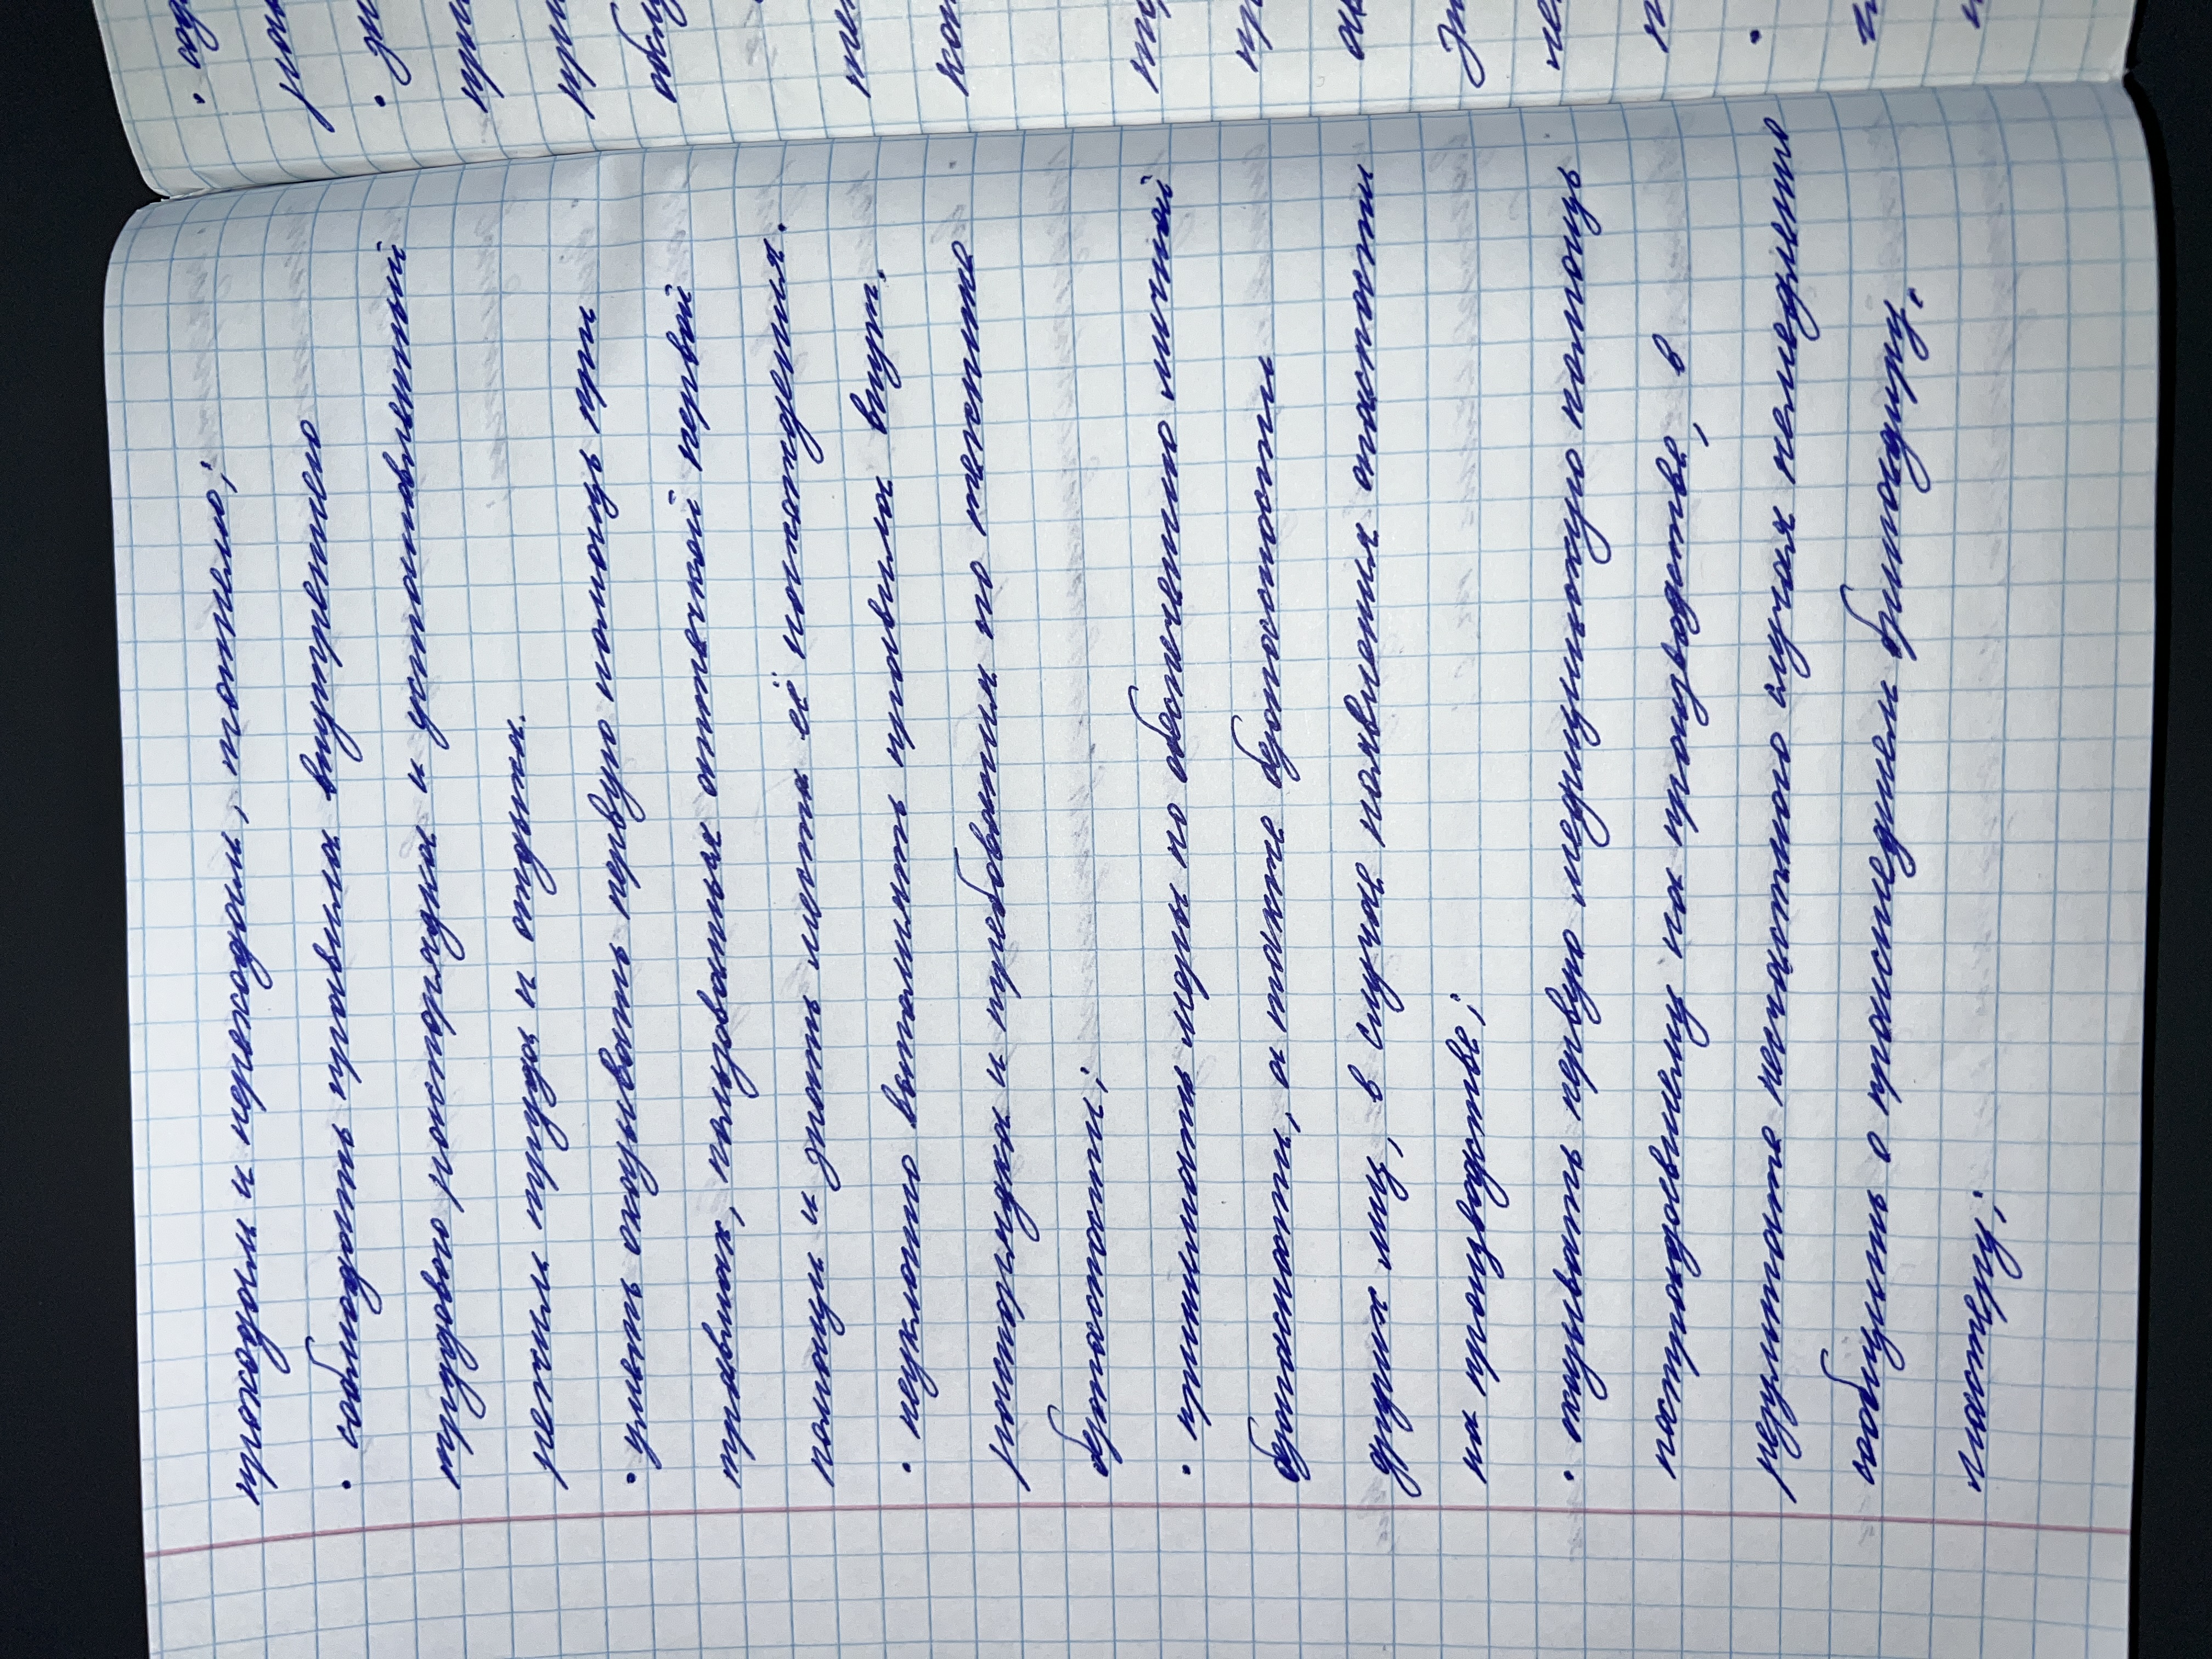 проходы и переходы, тоннели;
• соблюдать правила внутреннего
трудового распорядка и установленный
режим труда и отдыха.
• уметь оказывать первую помощь при
травмах, пользоваться аптечкой первой
помощи и знать места её нахождения.
• неуклонно выполнять правила внут.
распорядка и требования по технике
безопасности;
• принимать меры по обеспечению личной
безопасности, а также безопасности
других лиц, в случае появления опасности
на производстве;
• оказывать первую медицинскую помощь
пострадавшему на производстве, в
результате несчастного случая немедленно
сообщить о происшедшем бригадиру,
мастеру;